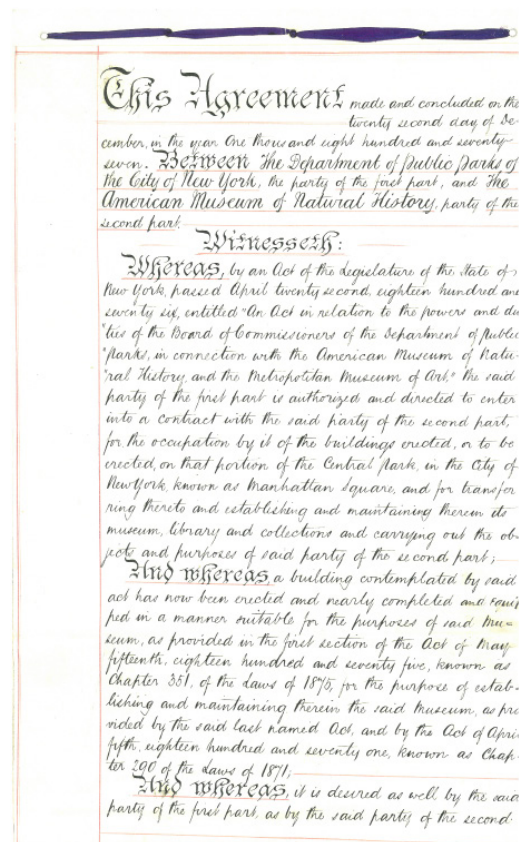 This Agreement made and concluded on the
twenty second day of De-
cember, in the year One thousand eight hundred and seventy
seven. Between The Department of Public Parks of
the City of New York, the party of the first part, and The
American Museum of Natural History, party of the
second part.
Witnesseth:
Whereas, by an Act of the Legislature of the State of
New York, passed April twenty second, eighteen hundred and
seventy six, entitled "An Act in relation to the powers and du
"ties of the Board of Commissioners of the Department of Public
"Parks, in connection with the American Museum of Natu-
"ral History, and the Metropolitan Museum of Art." the said
party of the first part is authorized and directed to enter
into a contract with the said party of the second part,
for the occupation by it of the buildings erected, or to be
erected, on that portion of the Central Park, in the City of
New York, known as Manhattan Square, and for transfer
ring thereto and establishing and maintaining therein its
museum, library and collections and carrying out the ob-
jects and purposes of said party of the second part;
And whereas, a building contemplated by said
act has now been erected and nearly completed and equip
ped in a manner suitable for the purposes of said Mu=
seum, as provided in the first section of the Act of May
fifteenth, eighteen hundred and seventy five, known as
Chapter 351, of the Laws of 1875, for the purpose of estab-
lishing and maintaining therein the said Museum, as pro
vided by the said last named Act, and by the Act of April
fifth, eighteen hundred and seventy one, known as Chap-
ter 290 of the Laws of 1871;
And whereas, it is desired as well by the said
party of the first part, as by the said party of the second